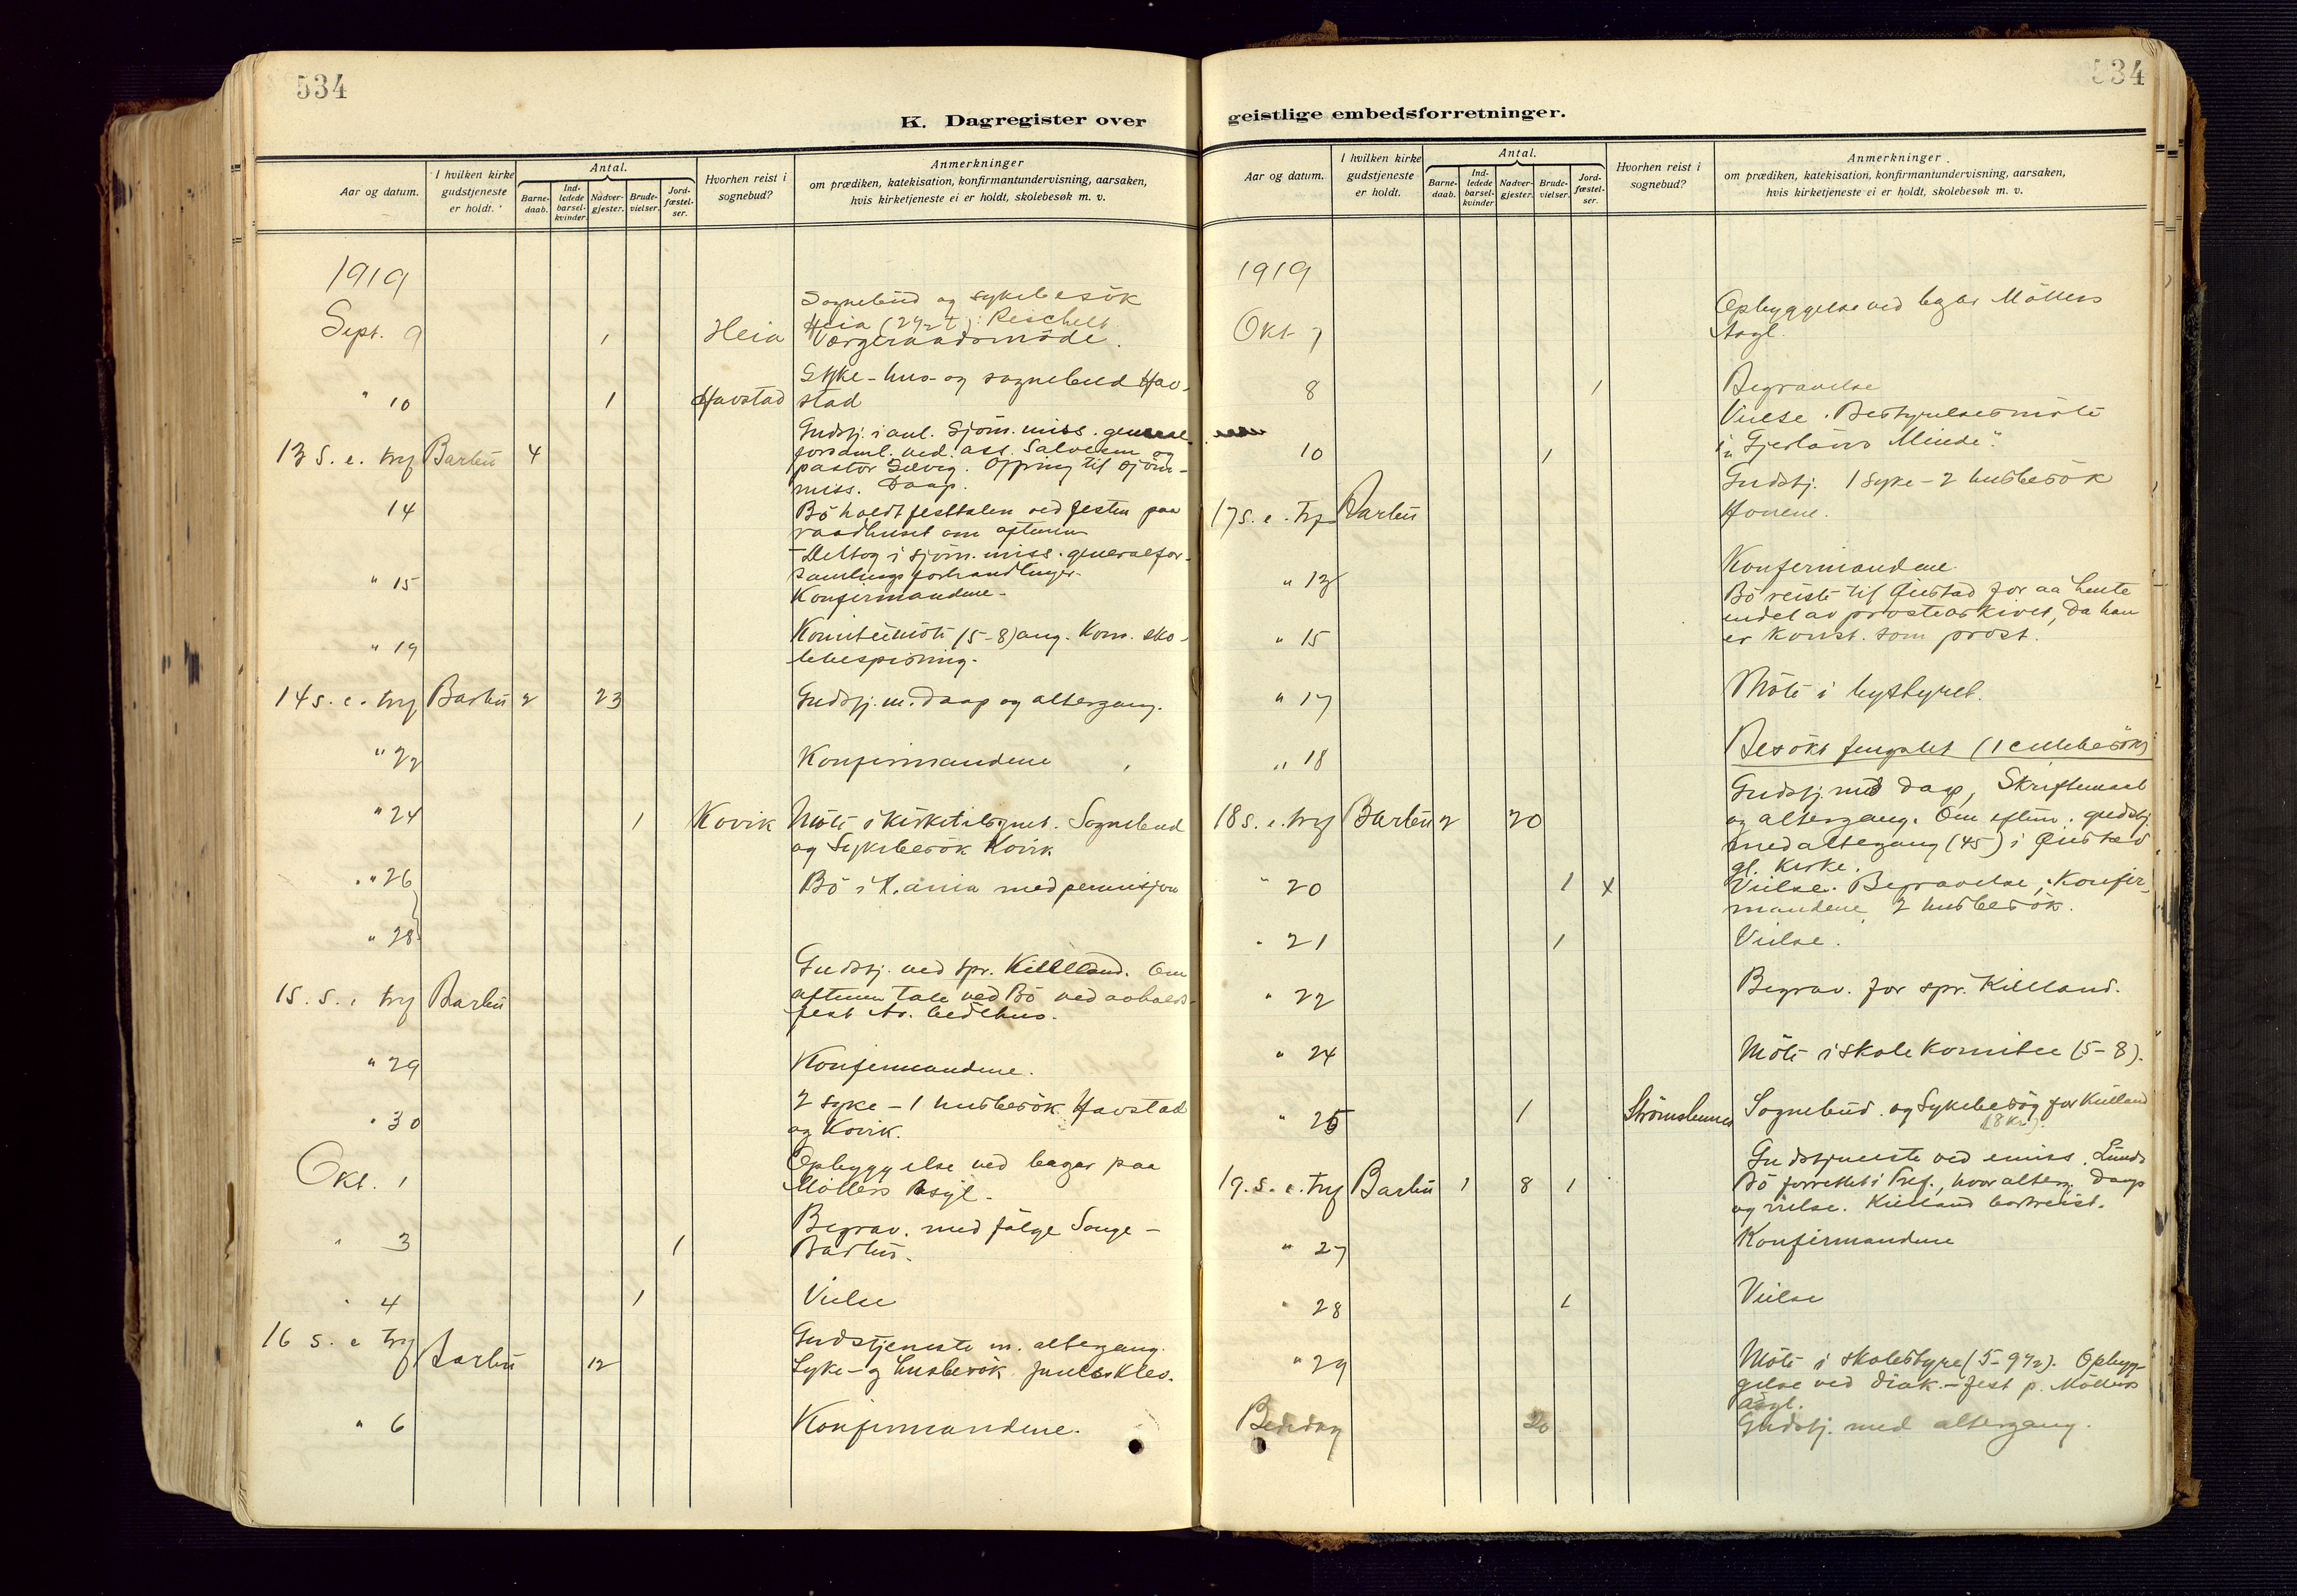 534
K. Dagregister over
Aar og datum.
I hvilken kirke gudstjeneste er holdt.
Antal.
Barne-daab.
Ind-ledede barsel-kvinder.
Nadver-gjester.
Brude-vielser.
Jord-fæstel-ser.
Hvorhen reist i sognebud?
Anmerkninger
om prædiken, katekisation, konfirmantundervisning, aarsaken,
hvis kirketjeneste ei er holdt, skolebesøk m. v.
1919
Sognebud og sykebesök
Sept. 9 1 Heia Heia (2½ t): Reichelt
Værgeraadsmöde.
Syke- hus- og sognebud Hav-
" 10 1 Havstad stad
Gudstj. i anl. Sjöm. miss. general
13 s. e. tref Barbu 4 forsaml. ved ass. Salvesen og
pastor Solvig. Ofring til sjöm-
miss. Daap.
14 Bö holdt festtalen ved festen paa
raadhuset om aftenen
- Deltog i sjöm. miss. generalfor-
" 15 samlings forhandlinger.
Konfirmandene.
" 19 Komitémöte (5-8) ang. Kom. sko-
lebespisning.
14 s. e. tref Barbu 2 23 Gudstj. m. daap og altergang.
" 22 Konfirmandene
" 24 1 Kovik Möte i Kirketilsynet. Sognebud
og Sykebesök Kovik
" 26 Bö i K.ania med permisjon
" 28
Gudstj. ved spr. Kielland. Om
15. s. e tref Barbu aftenen tale ved Bö ved avholds-
fest Ar. bedehus.
" 29 Konfirmandene.
2 syke - 1 husbesök Havstad
" 30 og Kovik.
Okt. 1 Opbyggelse ved bazar paa
Möllers Asyl.
" 3 1 Begrav. med fölge Songe -
Barbu.
" 4 1 Vielse
16 s. e tref Barbu 12 Gudstjeneste m. altergang.
Syke- og husbesök
" 6 Konfirmandene.
534
geistlige embedsforretninger.
Aar og datum.
I hvilken kirke gudstjeneste er holdt.
Antal.
Barne-daab.
Ind-ledede barsel-kvinder
Nadver-gjester.
Brude-vielser.
Jord-fæstel-ser.
Hvorhen reist i sognebud?
Anmerkninger
om prædiken, katekisation, konfirmantundervisning, aarsaken,
hvis kirketjeneste ei er holdt, skolebesøk m. v.
1919
Opbyggelse ved bazar Möllers
Okt 7 Asyl.
8 1 Begravelse
Vielse. Bestyrelsesmöte
10 1 i "Gjerlöws Minde".
Gudstj. 1 syke - 2 husbesök
17 s. e. tref Barbu
" 13 Konfirmandene
Bö reiste til Öiestad for aa hente
endel av prostearkivet, da han
" 15 er konst. som prost.
" 17 Möte i
" 18 Besökt fengslet (1 cellebesök)
Gudstj. med daap, Skriftemaal
18 s. e. tref Barbu 2 20 og altergang. Om efterm. gudstj.
med altergang (45) i Öiestad
gl. kirke.
" 20 1 x Vielse. Begravelse, Konfir-
mandene, 2 husbesök.
" 21 1 Vielse.
" 22 Begrav. for spr. Kielland.
" 24 Möte i skolekomitee (5-8).
" 25 1 Strömsbunes Sognebud og Sykebesög for Kielland
(8 Kr.).
Gudstjeneste ved emiss. Lunde
19. s. e. tref Barbu 1 8 1 Bö forrettet i Tref., hvor alterg. Daap
og vielse. Kielland bortreist.
" 27 Konfirmandene
" 28 1 Vielse
" 29 Möte i skolestyre (5-9½). Opbyg-
gelse ved diak.-fest p. Möllers
asyl.
Bededag 20 Gudstj. med altergang.